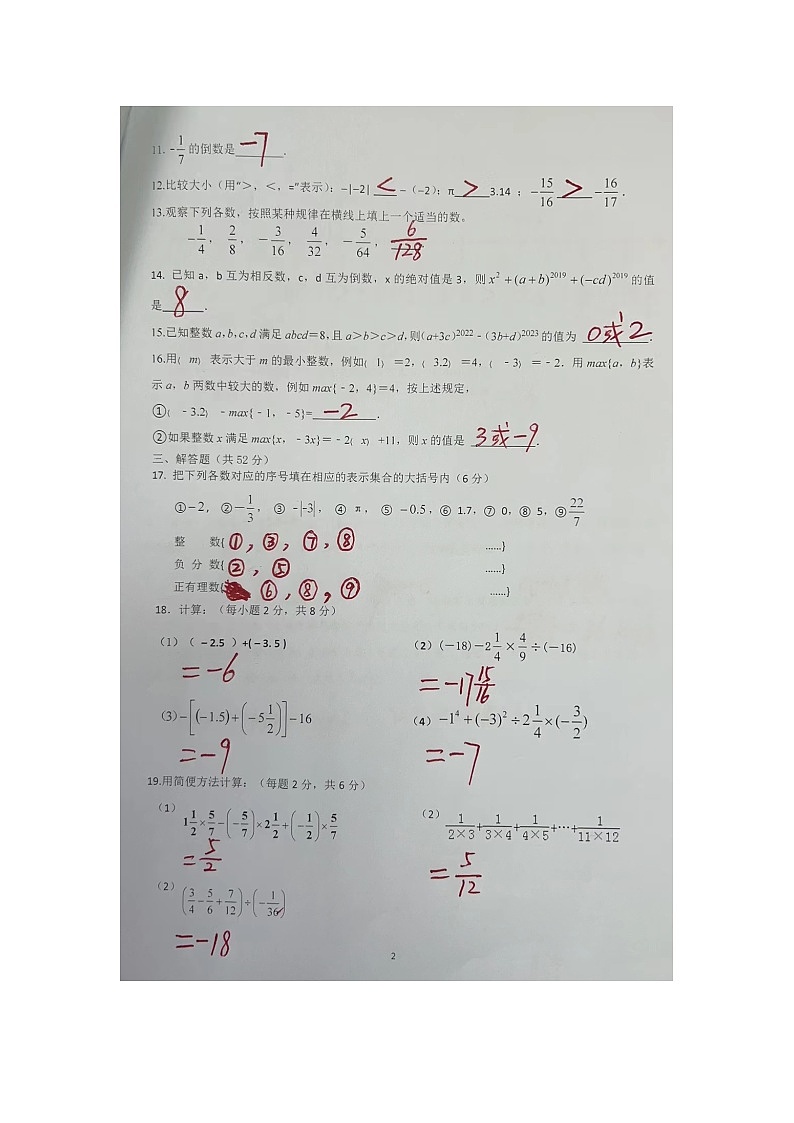 11. -1/7 的倒数是 -7 .
12.比较大小（用“>，<，=”表示）：−|−2| < −（−2）；π > 3.14 ； −15/16 > −16/17 .
13.观察下列各数，按照某种规律在横线上填上一个适当的数。
−1/4， 2/8， −3/16， 4/32， −5/64， 6/128 .
14. 已知 a，b 互为相反数，c，d 互为倒数，x 的绝对值是 3，则 x²+(a+b)²⁰¹⁹+(−cd)²⁰¹⁹ 的值
是 8 .
15.已知整数 a,b,c,d 满足 abcd＝8,且 a＞b＞c＞d,则(a+3c)²⁰²² - (3b+d)²⁰²³ 的值为 0或2 .
16.用（ m） 表示大于 m 的最小整数，例如（ 1） ＝2，（ 3.2） ＝4，（ ﹣3） ＝﹣2．用 max{a，b}表
示 a，b 两数中较大的数，例如 max{﹣2，4}＝4，按上述规定，
①（ ﹣3.2） ﹣max{﹣1，﹣5}= -2 .
②如果整数 x 满足 max{x，﹣3x}＝﹣2（ x） +11，则 x 的值是 3或-9 .
三、解答题（共 52 分）
17. 把下列各数对应的序号填在相应的表示集合的大括号内（6 分）
①−2， ②−1/3， ③ -|-3|， ④ π， ⑤ −0.5，⑥ 1.7，⑦ 0，⑧ 5，⑨22/7
整 数{ ①，③，⑦，⑧ ……}
负 分 数{ ②，⑤ ……}
正有理数{ ⑥，⑧，⑨ ……}
18. 计算：（每小题 2 分，共 8 分）
(1)（ −2.5 ）+(−3.5 ) (2) (−18)−2 1/4×4/9÷(−16)
=-6 =-17 15/16
(3)−[(−1.5)+(−5 1/2)]−16 (4) −1⁴+(−3)²÷2 1/4×(−3/2)
=-9 =-7
19.用简便方法计算：（每题 2 分，共 6 分）
(1) 1 1/2×5/7−(−5/7)×2 1/2+(−1/2)×5/7 (2) 1/2×3+1/3×4+1/4×5+…+1/11×12
=5/2 =5/12
(2) (3/4−5/6+7/12)÷(−1/36)
=-18
2